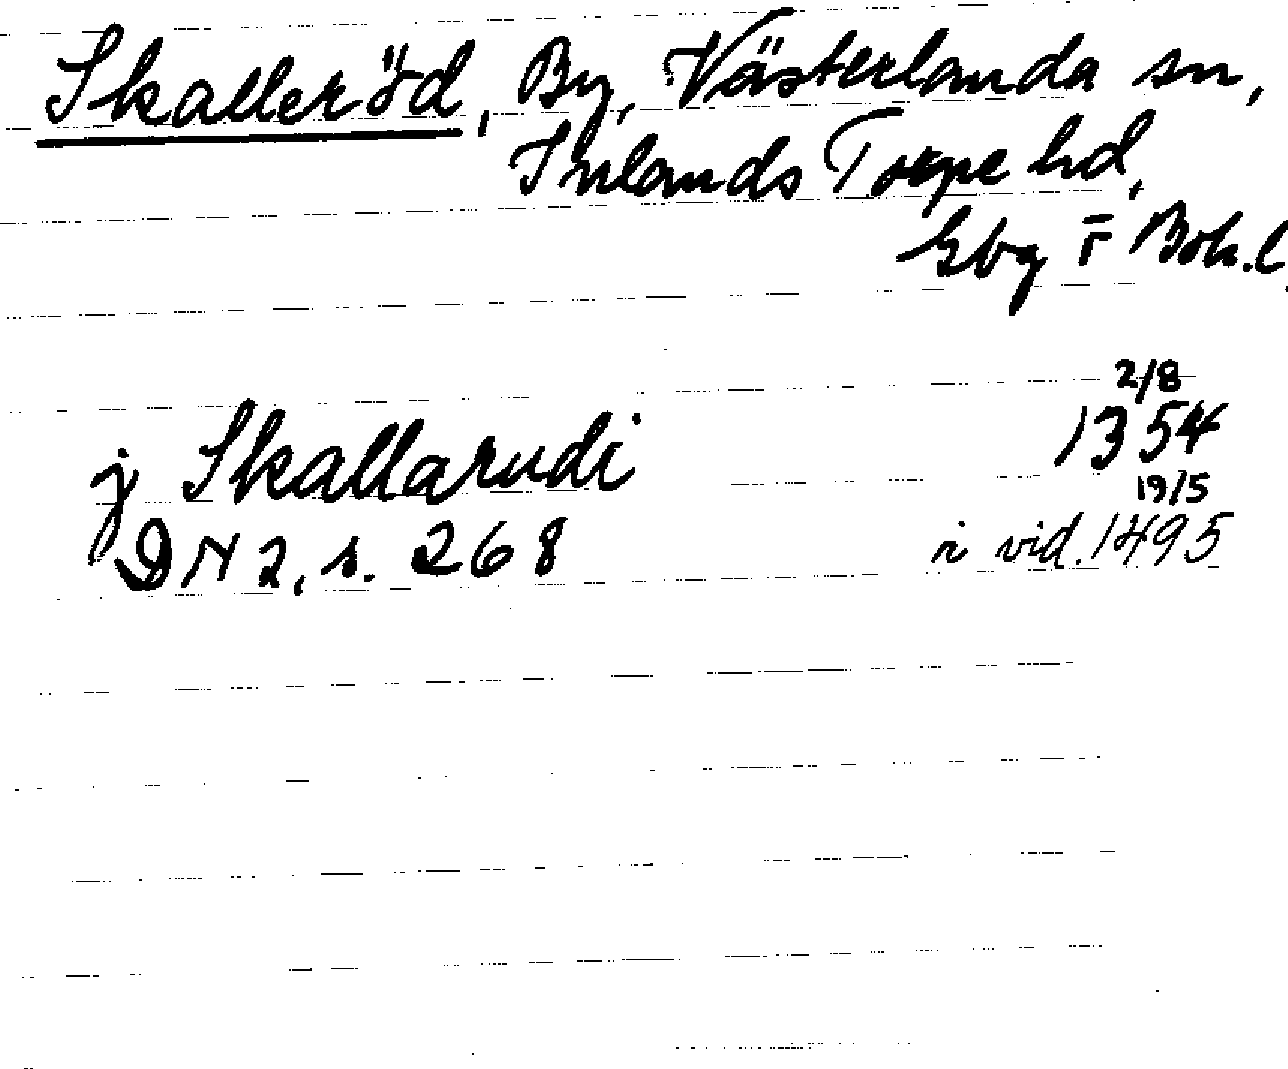 Skalleröd, By, Västerlanda sn,
Inlands Torpe hd,
Gbg o Boh. l.
j Skallarudi 2/8 1354
DN 2, s. 268 i vid. 19/5 1495